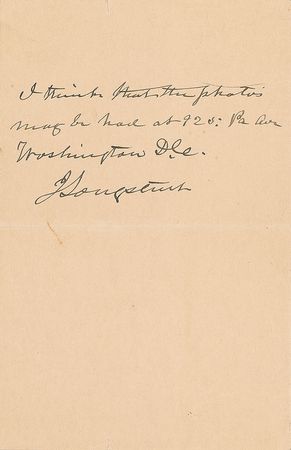 I think that the photos
may be had at 925. Pa Ave
Washington D.C.
J Longstreet